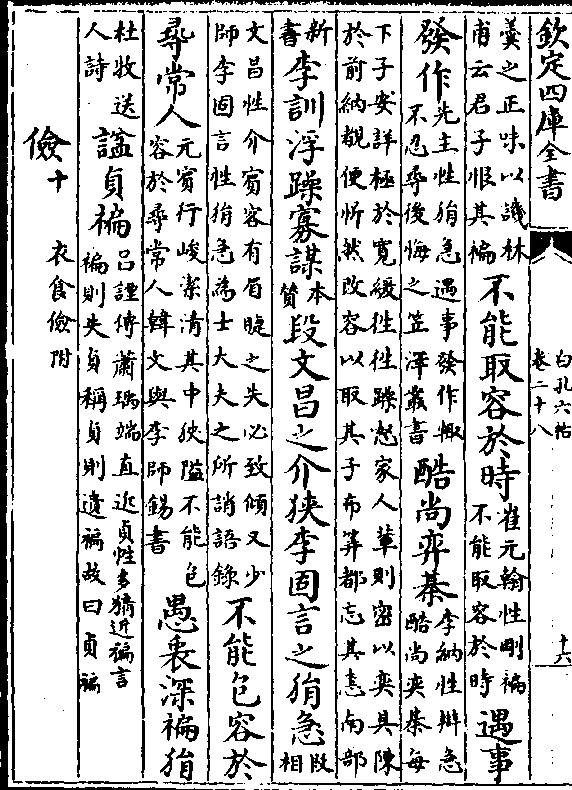 欽定四庫全書
白孔六帖
卷二十八
十六
羮之正味以譏林
甫云君子恨其褊
不能取容於時
崔元翰性剛褊
不能取容於時
遇事
發作
先主性狷急遇事發作輙
不忍尋後悔之笠澤叢書
酷尚弈棊
李納性辯急
酷尚奕棊每
下子安詳極於寛緩往往躁怒家人輩則密以奕具陳
於前納覩便忻然改容以取其子布算都忘其恚南部
新
書
李訓浮躁寡謀
本
賛
段文昌之介狹李固言之狷急
段
相
文昌性介賓客有眉睫之失必致傾又少
師李固言性狷急為士大夫之所誚語錄
不能包容於
尋常人
元賓行峻潔清其中狹隘不能包
容於尋常人韓文與李師錫書
愚衷深褊狷
杜牧送
人詩
謚貞褊
吕諲傳蕭瑀端直近貞性多猜近褊言
褊則失貞稱貞則遺褊故曰貞褊
儉十
衣食儉附